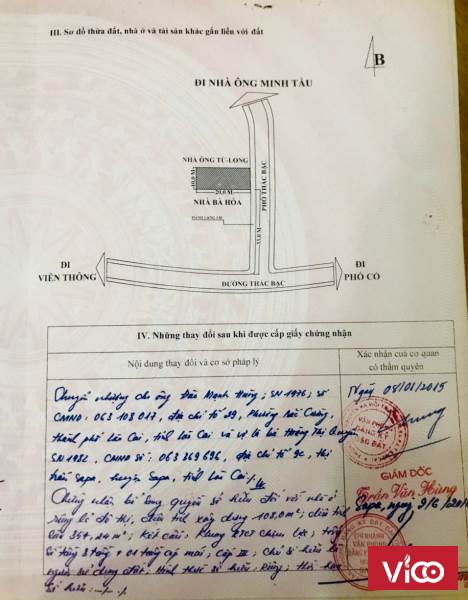 III. Sơ đồ thửa đất, nhà ở và tài sản khác gắn liền với đất
B
ĐI NHÀ ÔNG MINH TẨU
NHÀ ÔNG TÚ-LONG
10,0 M
20,0 M
NHÀ BÀ HÒA
PHỐ THÁC BẠC
33,0 M
ĐI
VIỄN THÔNG
ĐƯỜNG THÁC BẠC
ĐI
PHỐ CỔ
IV. Những thay đổi sau khi được cấp giấy chứng nhận
Nội dung thay đổi và cơ sở pháp lý
Xác nhận của cơ quan
có thẩm quyền
Chuyển nhượng cho ông Đào Mạnh Hùng; SN 1976; số
CMND: 063103017, địa chỉ tổ 29, Phường
thành phố Lào Cai, tỉnh Lào Cai và vợ là bà Hoàng Thị Quyên
SN 1982 CMND số: 063269696, địa chỉ tổ 9c, thị
trấn Sapa, huyện Sapa, tỉnh Lào Cai
Ngày 08/01/2015
VĂN PHÒNG
ĐĂNG KÝ
GIÁM ĐỐC
Trần Văn Hùng
Chứng nhận bổ sung quyền sở hữu đối với nhà ở
riêng lẻ đô thị, diện tích xây dựng 103,0m²; diện tích
sàn m²; Kết cấu: Khung BTCT chịu lực,
tầng 3 tầng + 01 tầng Cấp III; Chủ sở hữu là
người sử dụng đất; Hình thức sở hữu: Riêng; Thời hạn
sở hữu:
Sapa, ngày
CHI NHÁNH
VĂN PHÒNG
Vico